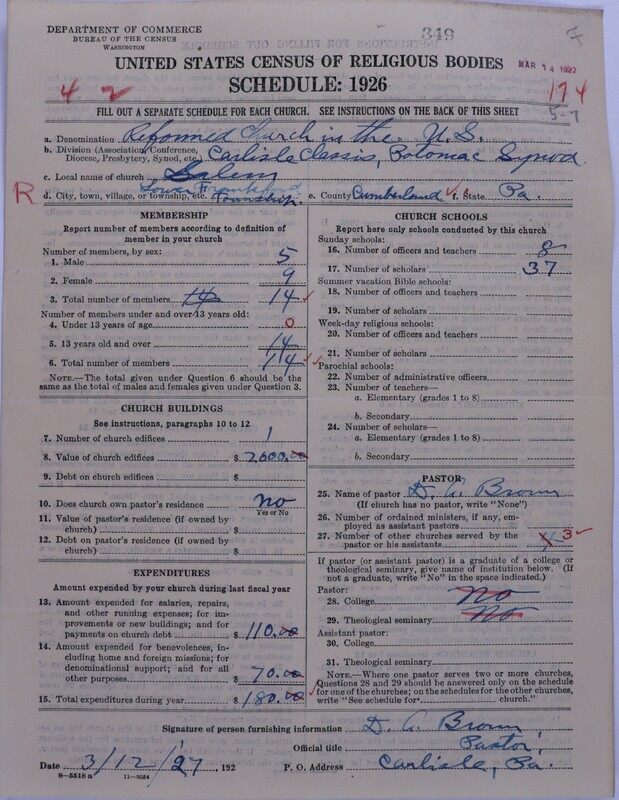 DEPARTMENT OF COMMERCE
BUREAU OF THE CENSUS
WASHINGTON
349
7
UNITED STATES CENSUS OF RELIGIOUS BODIES
MAR 14 1927
SCHEDULE: 1926
4 2
174
FILL OUT A SEPARATE SCHEDULE FOR EACH CHURCH. SEE INSTRUCTIONS ON THE BACK OF THIS SHEET
5-7
a. Denomination Reformed Church in the U.S.
b. Division (Association, Conference, Diocese, Presbytery, Synod, etc.) Carlisle Classis, Potomac Synod
c. Local name of church Salem
R d. City, town, village, or township, etc. Lower Frankford Township. e. County Cumberland f. State Pa.
MEMBERSHIP
Report number of members according to definition of
member in your church
Number of members, by sex:
1. Male 5
2. Female 9
3. Total number of members 14 14
Number of members under and over 13 years old:
4. Under 13 years of age 0
5. 13 years old and over 14
6. Total number of members 14
NOTE.—The total given under Question 6 should be the
same as the total of males and females given under Question 3.
CHURCH BUILDINGS
See instructions, paragraphs 10 to 12
7. Number of church edifices 1
8. Value of church edifices $ 2600.00
9. Debt on church edifices $
10. Does church own pastor's residence no
Yes or No
11. Value of pastor's residence (if owned by
church) $
12. Debt on pastor's residence (if owned by
church) $
EXPENDITURES
Amount expended by your church during last fiscal year
13. Amount expended for salaries, repairs,
and other running expenses; for im-
provements or new buildings; and for
payments on church debt $ 110.00
14. Amount expended for benevolences, in-
cluding home and foreign missions; for
denominational support; and for all
other purposes $ 70.00
15. Total expenditures during year $ 180.00
CHURCH SCHOOLS
Report here only schools conducted by this church
Sunday schools:
16. Number of officers and teachers 8
17. Number of scholars 37
Summer vacation Bible schools:
18. Number of officers and teachers
19. Number of scholars
Week-day religious schools:
20. Number of officers and teachers
21. Number of scholars
Parochial schools:
22. Number of administrative officers
23. Number of teachers—
a. Elementary (grades 1 to 8)
b. Secondary
24. Number of scholars—
a. Elementary (grades 1 to 8)
b. Secondary
PASTOR
25. Name of pastor D. A. Brown
(If church has no pastor, write "None")
26. Number of ordained ministers, if any, em-
ployed as assistant pastors
27. Number of other churches served by the
pastor or his assistants 3
If pastor (or assistant pastor) is a graduate of a college or
theological seminary, give name of institution below. (If
not a graduate, write "No" in the space indicated.)
Pastor:
28. College No
29. Theological seminary No
Assistant pastor:
30. College
31. Theological seminary
NOTE.—Where one pastor serves two or more churches,
Questions 28 and 29 should be answered only on the schedule
for one of the churches; on the schedules for the other churches,
write "See schedule for church."
Signature of person furnishing information D. A. Brown,
Official title Pastor,
Date 3/12/27, 192 P. O. Address Carlisle, Pa.
8-5518 a 11-9084